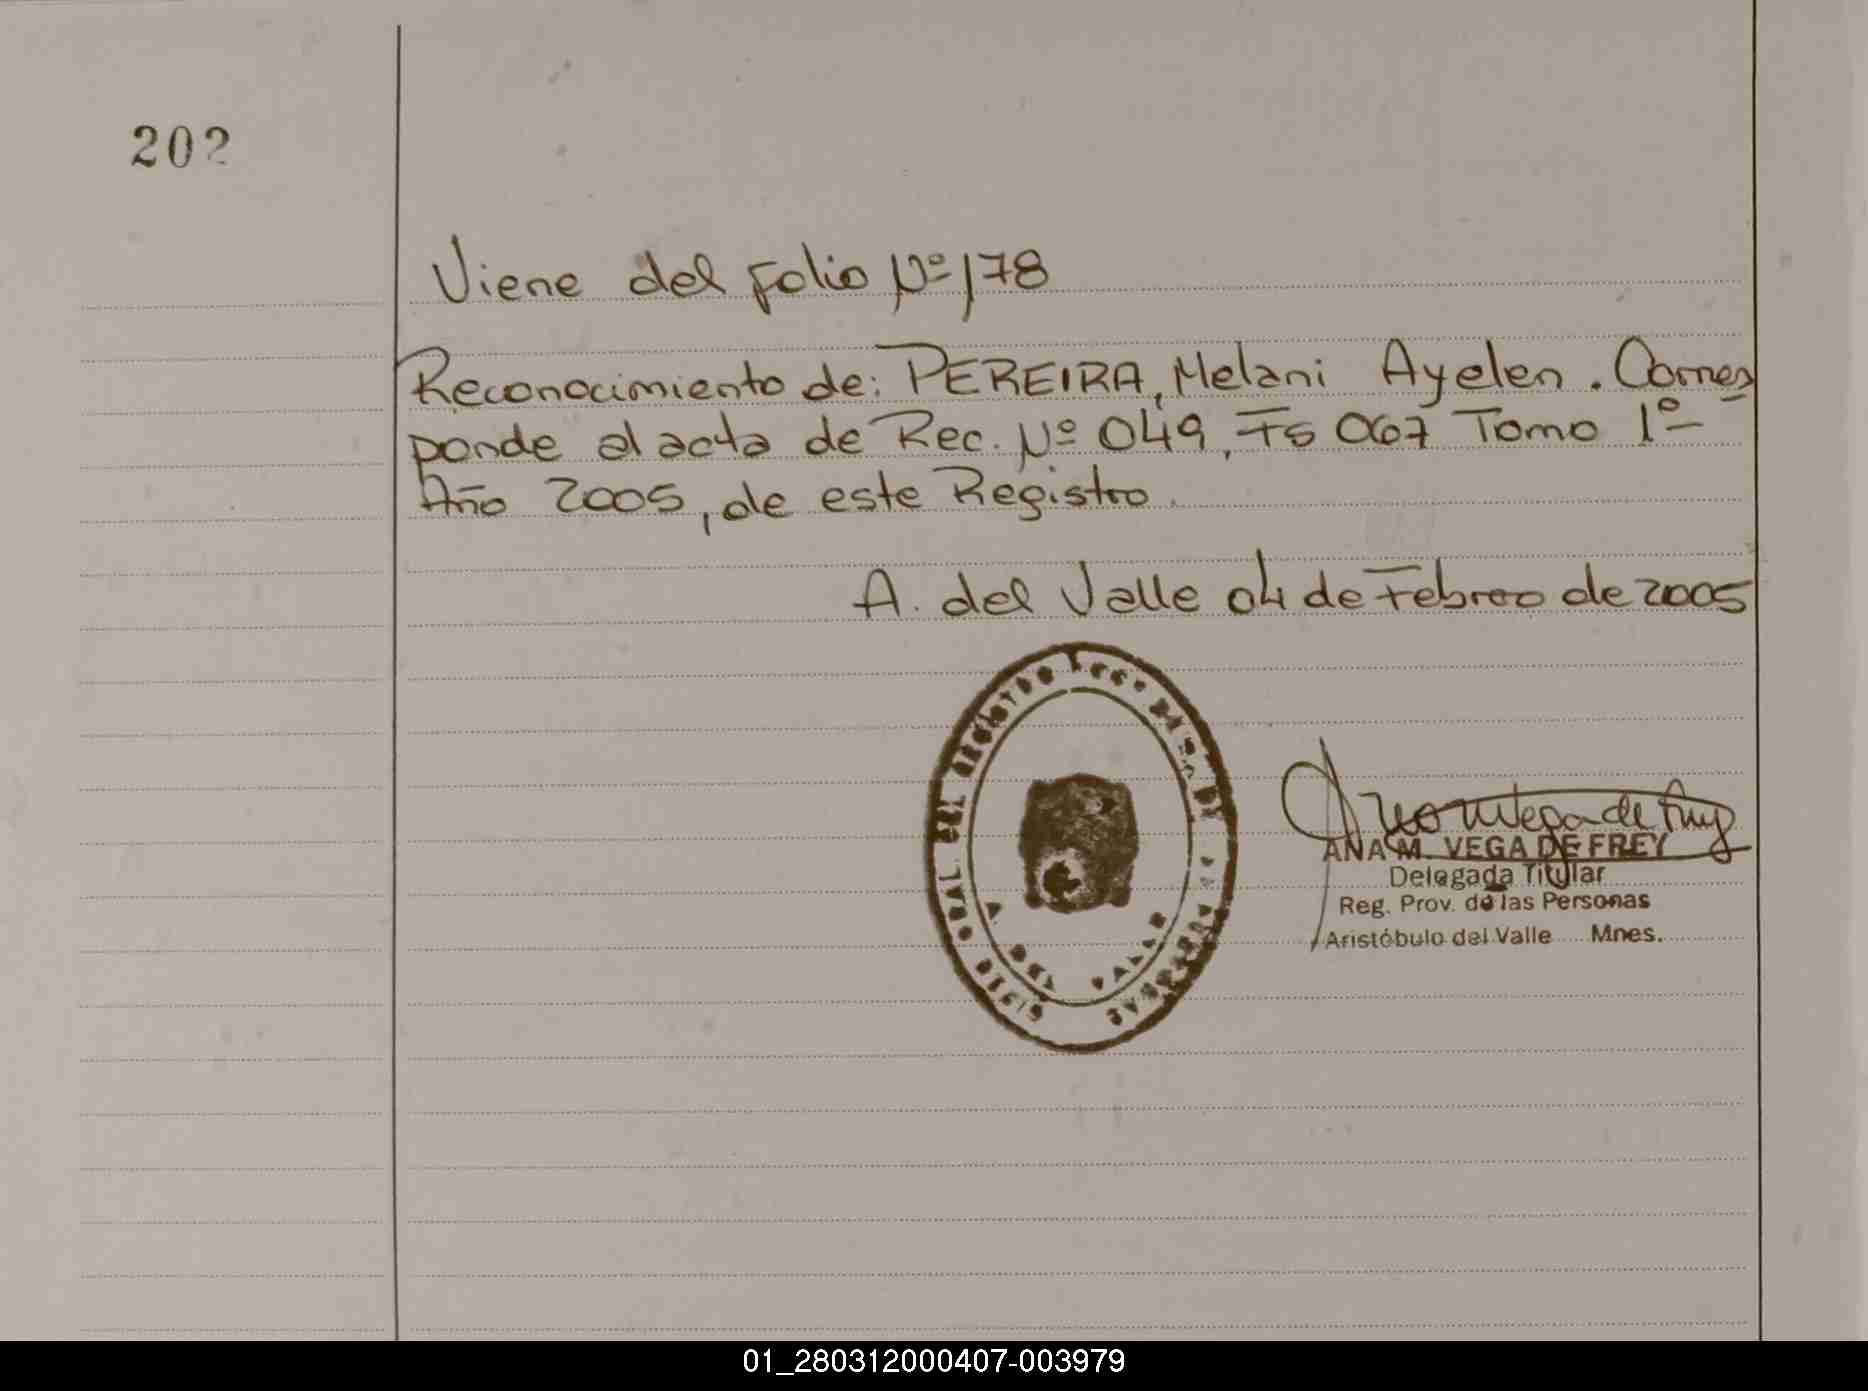 202
Viene del folio Nº 178
Reconocimiento de: PEREIRA, Melani Ayelen. Corres
ponde al acta de Rec. Nº 049, Fs 067 Tomo 1º
Año 2005, de este Registro.
A. del Valle 04 de Febrero de 2005
A DEL VALLE
ANA M. VEGA DE FREY
Delegada Titular
Reg. Prov. de las Personas
Aristóbulo del Valle Mnes.
01_280312000407-003979